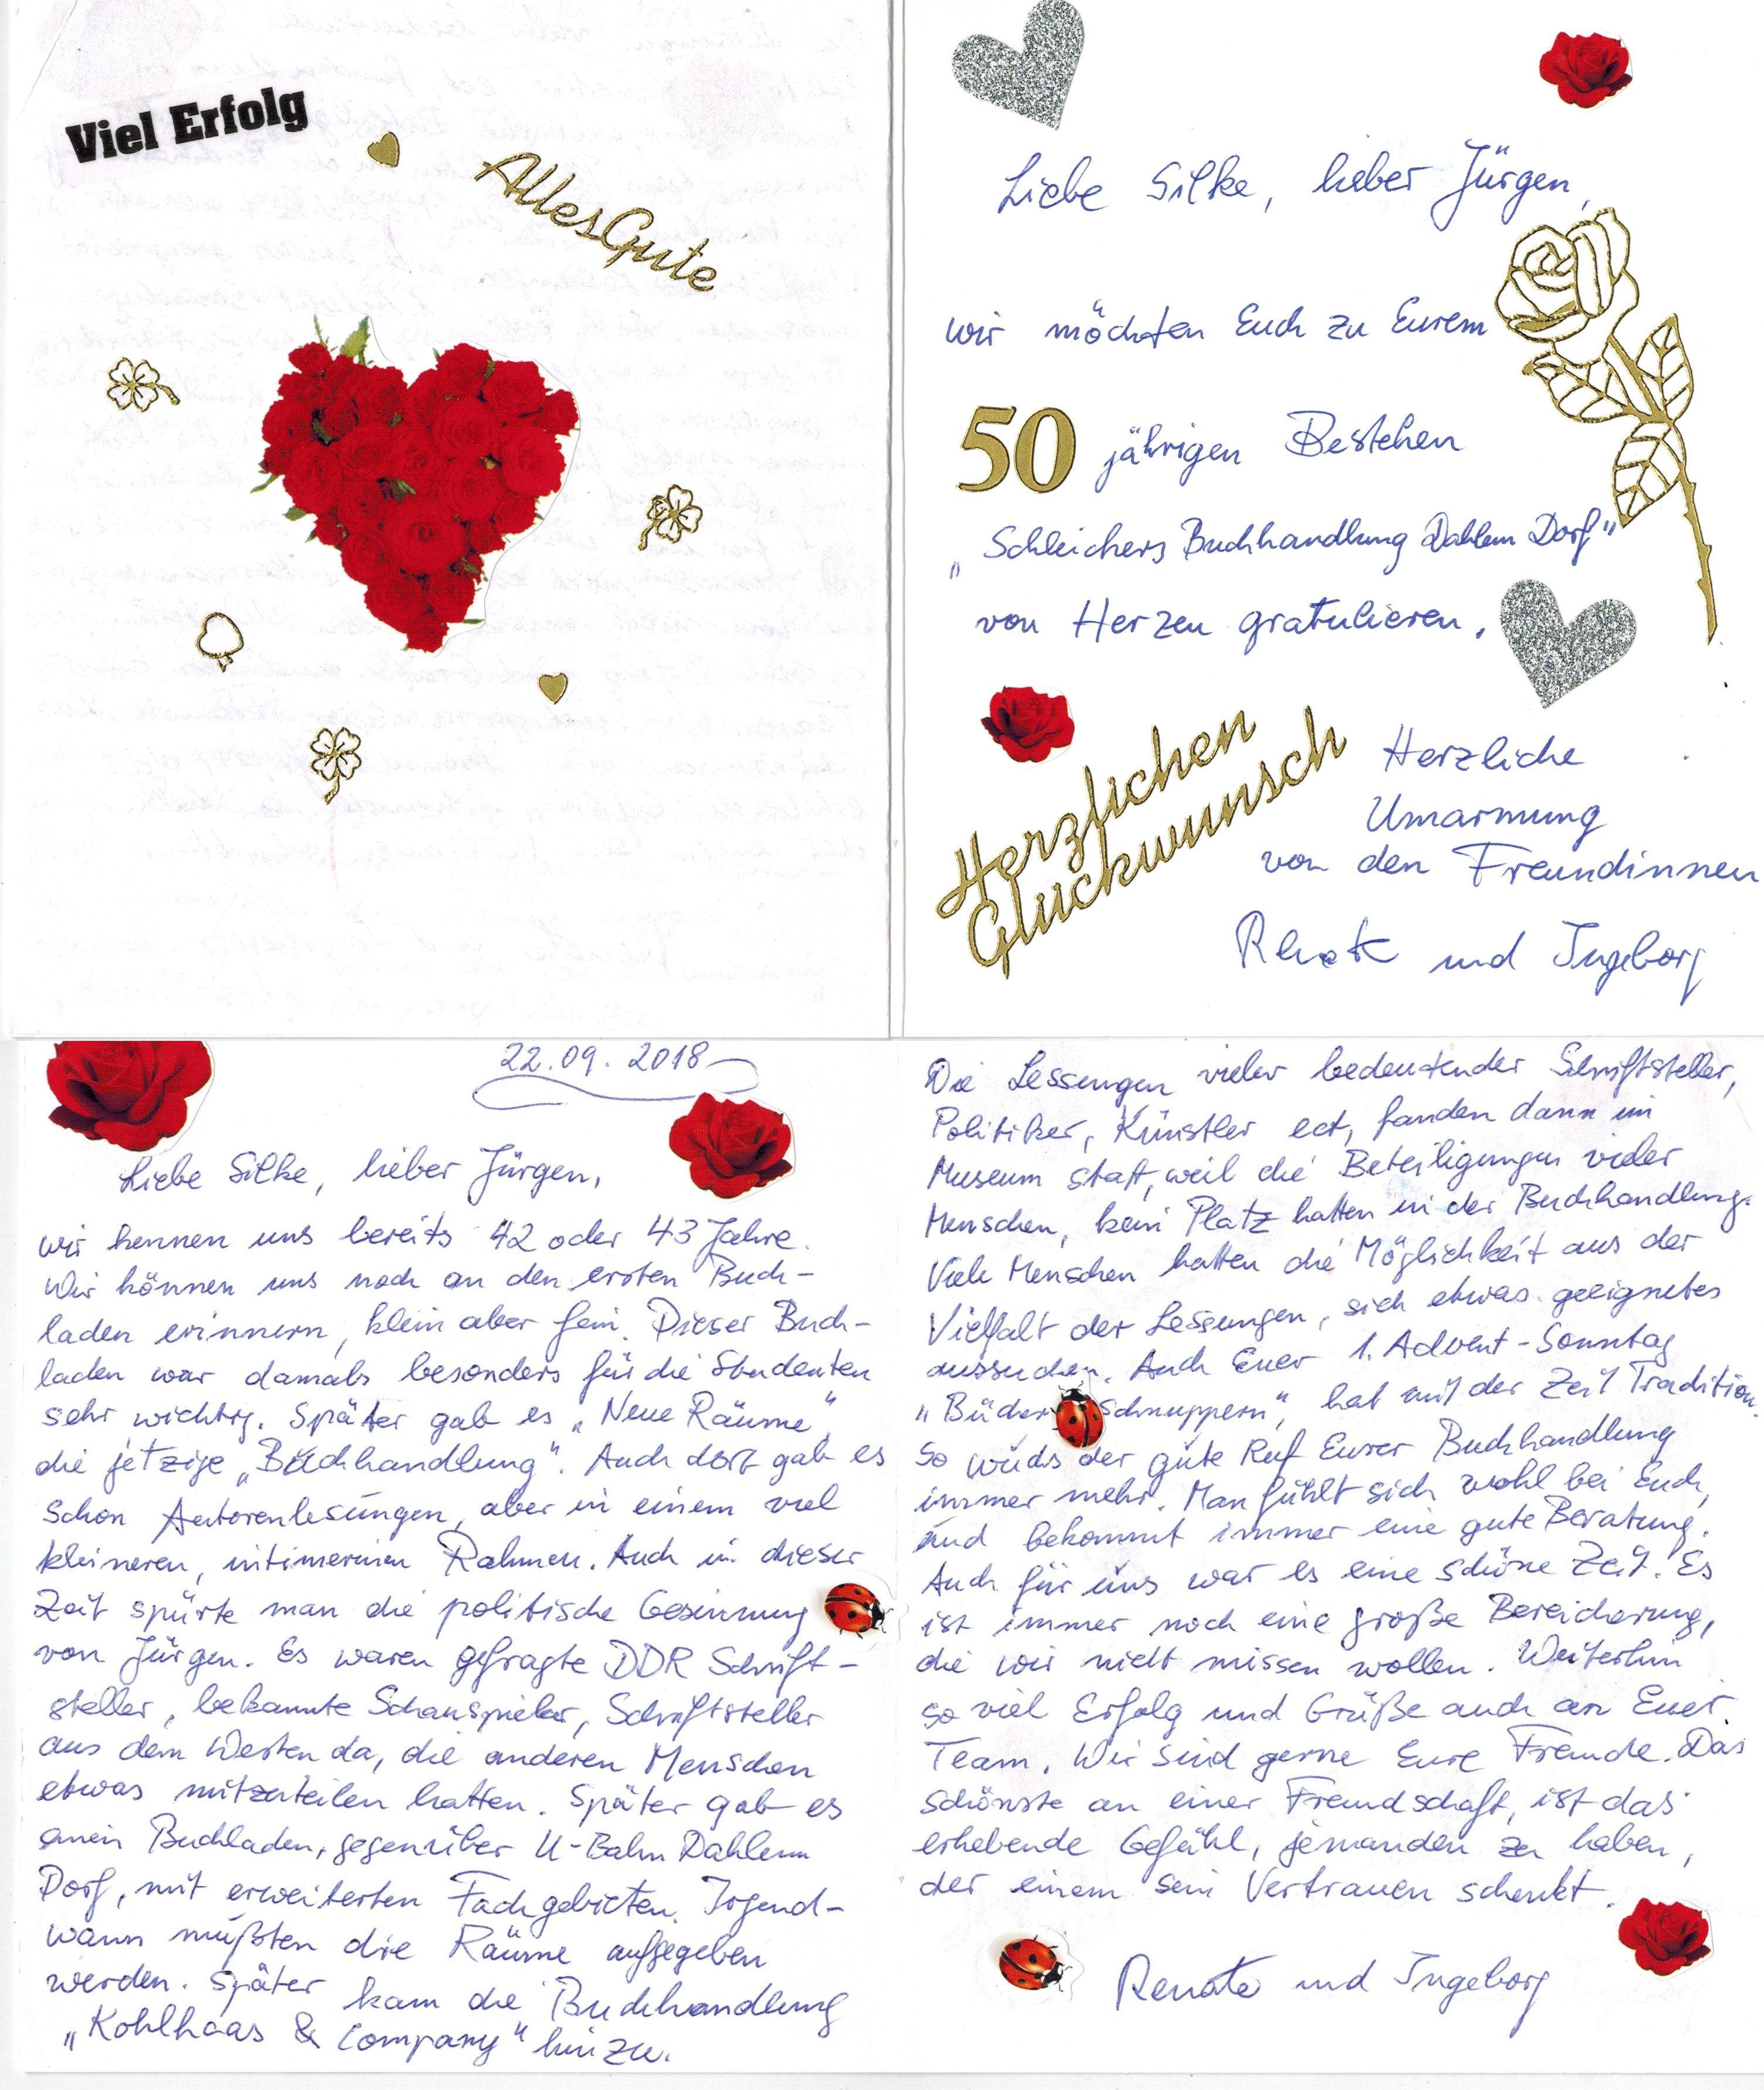 Viel Erfolg
Alles Gute
Liebe Silke, lieber Jürgen,
wir möchten Euch zu Eurem
50 jährigen Bestehen
„Schleichers Buchhandlung Dahlem Dorf"
von Herzen gratulieren.
Herzlichen
Glückwunsch
Herzliche
Umarmung
von den Freundinnen
Renate und Ingeborg
22.09.2018
Liebe Silke, lieber Jürgen,
wir kennen uns bereits 42 oder 43 Jahre.
Wir können uns noch an den ersten Buch-
laden erinnern, klein aber fein. Dieser Buch-
laden war damals besonders für die Studenten
sehr wichtig. Später gab es „Neue Räume"
die jetzige „Buchhandlung". Auch dort gab es
schon Autorenlesungen, aber in einem viel
kleineren, intimeren Rahmen. Auch in dieser
Zeit spürte man die politische Gesinnung
von Jürgen. Es waren gefragte DDR Schrift-
steller, bekannte Schauspieler, Schriftsteller
aus dem Westen da, die anderen Menschen
etwas mitzuteilen hatten. Später gab es
einen Buchladen, gegenüber U-Bahn Dahlem
Dorf, mit erweiterten Fachgebieten. Irgend-
wann mußten die Räume aufgegeben
werden. Später kam die Buchhandlung
„Kohlhaas & Company" hinzu.
Die Lessungen vieler bedeutender Schriftsteller,
Politiker, Künstler ect, fanden dann im
Museum statt, weil die Beteiligungen vieler
Menschen, kein Platz hatten in der Buchhandlung.
Viele Menschen hatten die Möglichkeit aus der
Vielfalt der Lessungen, sich etwas geeignetes
aussuchen. Auch Euer 1. Advent-Sonntag
„Bücher Schnuppern", hat mit der Zeit Tradition.
So wuchs der gute Ruf Eurer Buchhandlung
immer mehr. Man fühlt sich wohl bei Euch,
und bekommt immer eine gute Beratung.
Auch für uns war es eine schöne Zeit. Es
ist immer noch eine große Bereicherung,
die wir nicht missen wollen. Weiterhin
so viel Erfolg und Grüße auch an Euer
Team. Wir sind gerne Eure Freunde. Das
schönste an einer Freundschaft, ist das
erhebende Gefühl, jemanden zu haben,
der einem sein Vertrauen schenkt.
Renate und Ingeborg